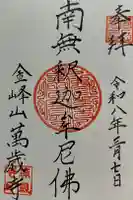 奉拝
令和八年二月七日
南無釈迦牟尼佛
金峰山 萬歳寺